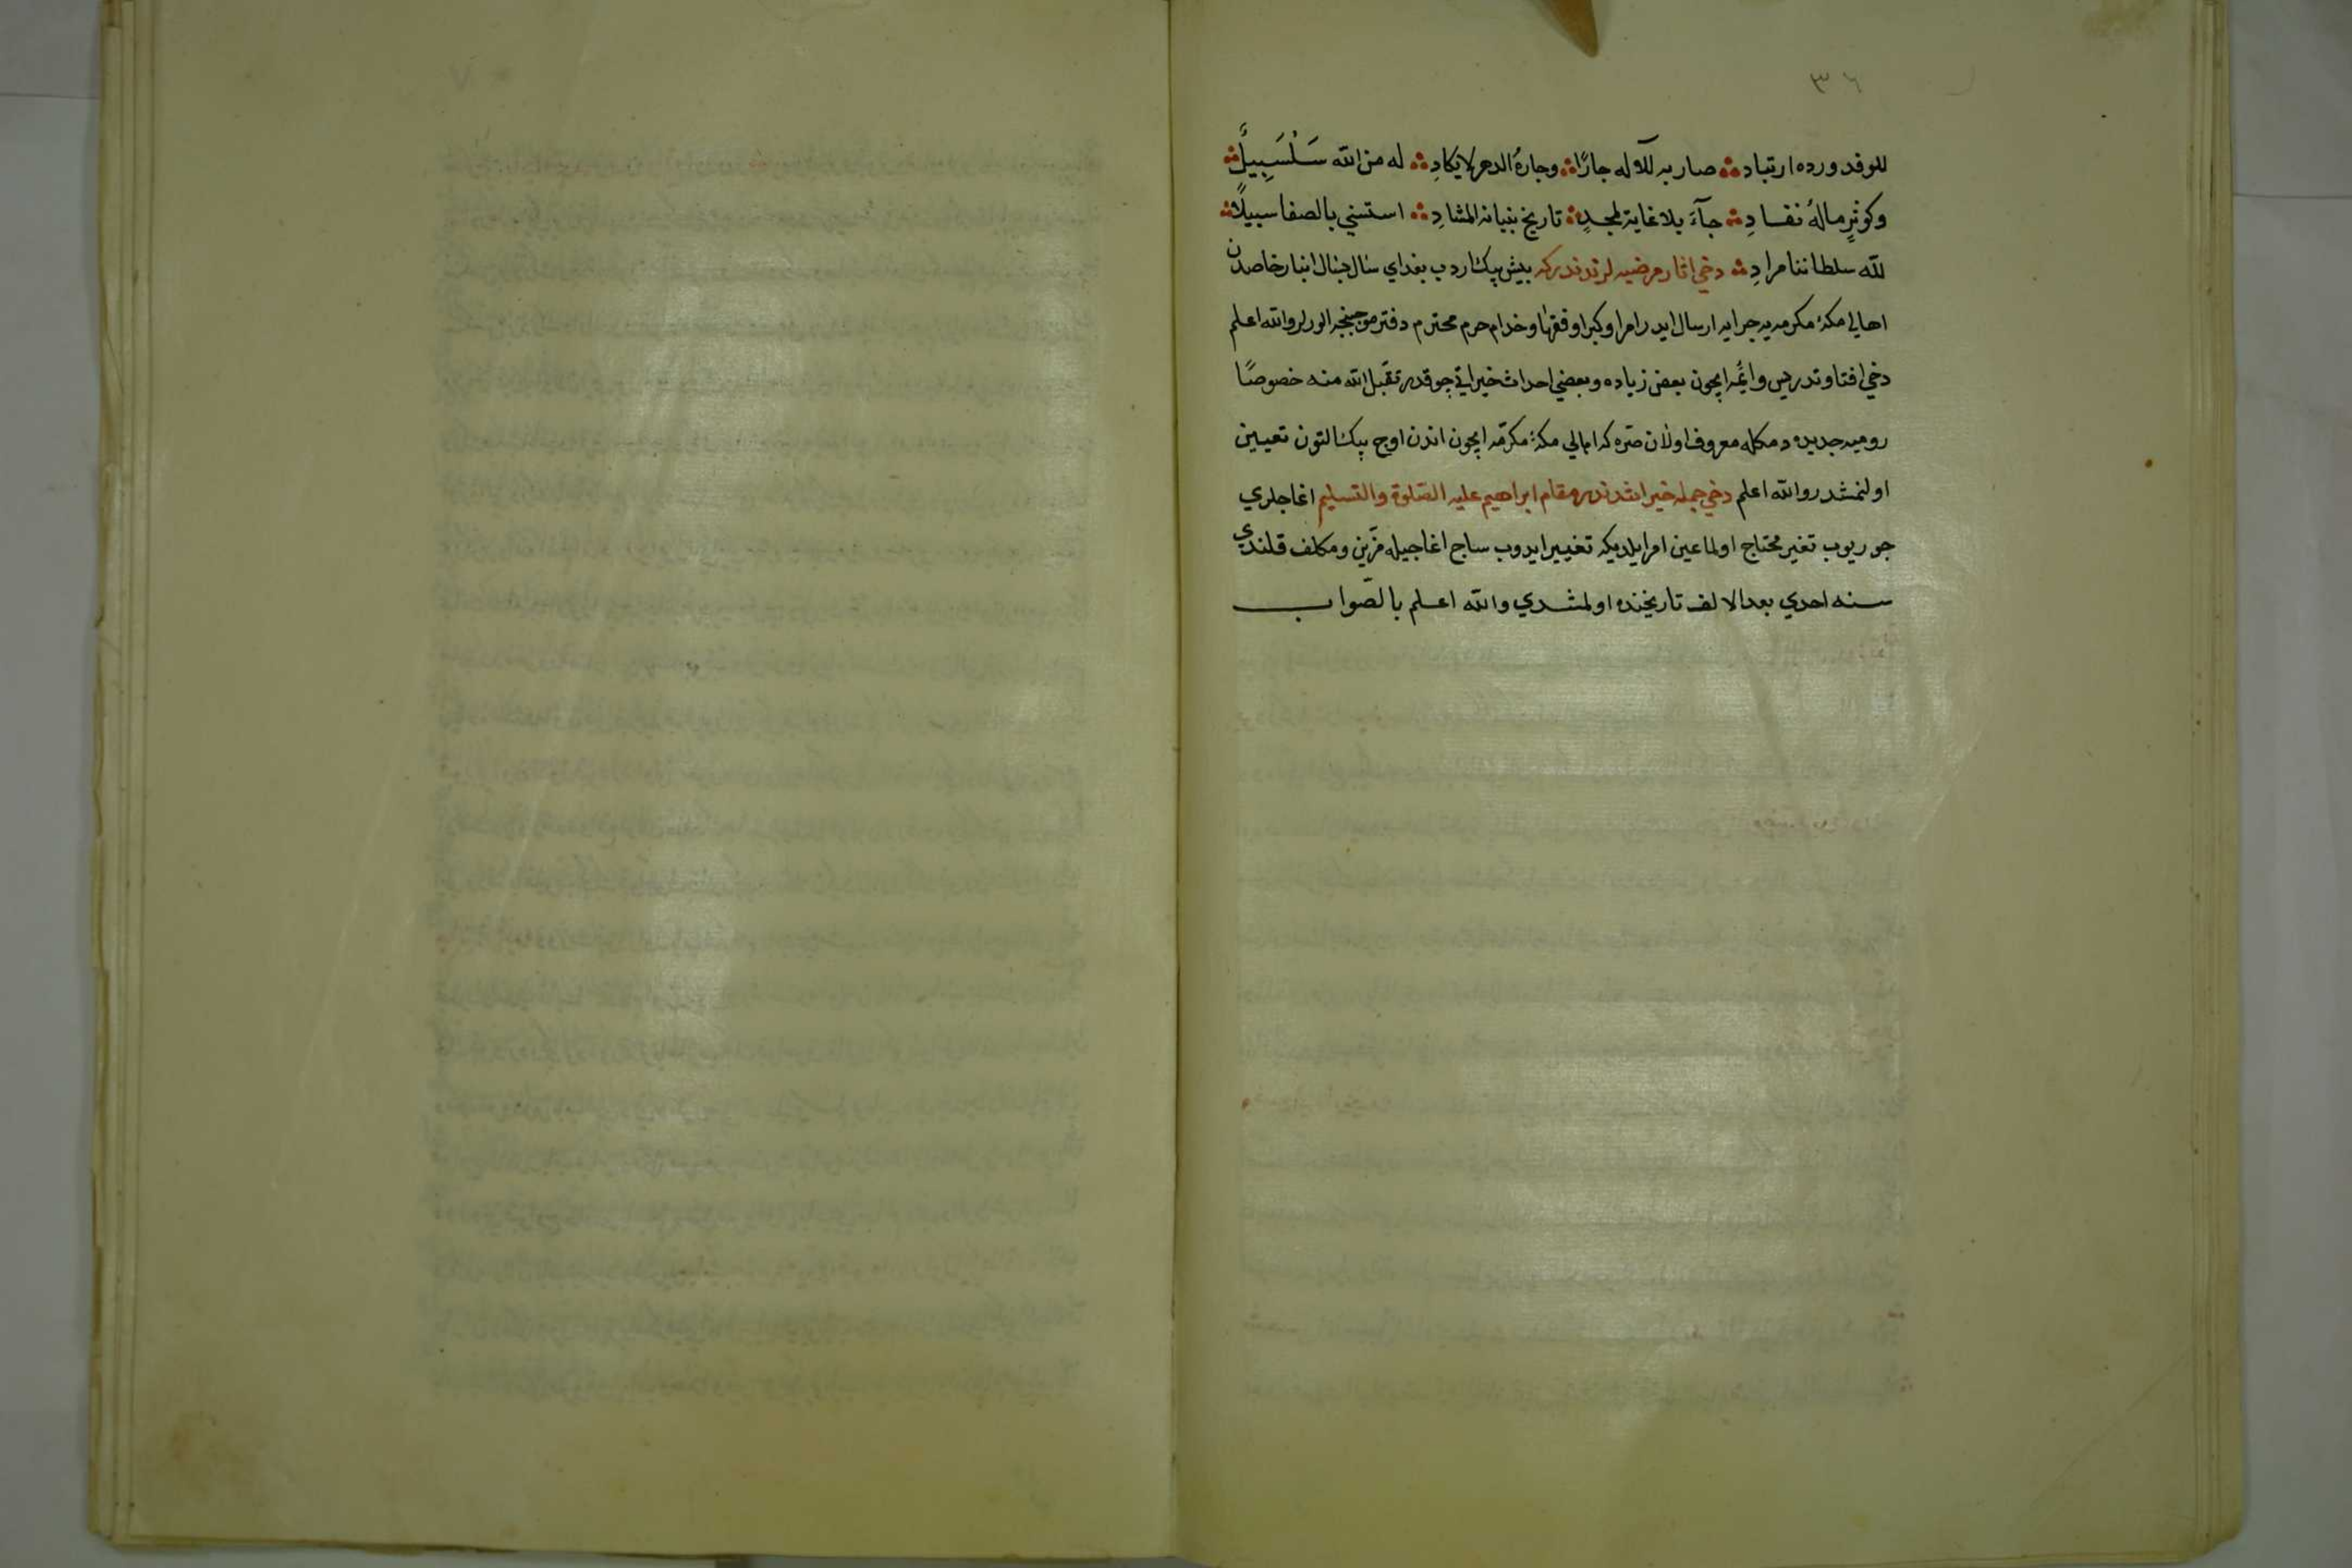 ٣٦
للوفد ورده ارتياد صار به للاله جارًا وجارهُ الدهر لا يكادِ له من الله سَلْسَبِيلٌ
وكوثرٍ مالهُ نفادِ جآءَ بلا غاية لمجدٍ تاريخ بنيانه المشادِ استسني بالصفا سبيلًا
لله سلطاننا مرادِ دخي اثار مرضيه لرندندركه بيش بيك اردب بغداي سال بسال انبار خاصدن
اهالي مكهٔ مكرمه يه جرايه ارسال ايدر امرا وكبرا وفقها وخدام حرم محترم دفتر موجبنجه الورلر والله اعلم
دخي افتا وتدريس وائمه ايچون بعض زياده وبعضي احداث خيراتي چوقدر تقبل الله منه خصوصًا
روميه جديده دمكله معروف اولان صره كه اهالي مكهٔ مكرمه ايچون اندن اوچ بيك التون تعيين
اولنمشدر والله اعلم دخي جمله خيراتندندر مقام ابراهيم عليه الصلوة والتسليم اغاجلري
چوريوب تغير محتاج اولماغين امر ايلديكه تغيير ايدوب ساج اغاجيله مزين ومكلف قلندي
سنه احدي بعد الالف تاريخنده اولمشدي والله اعلم بالصواب